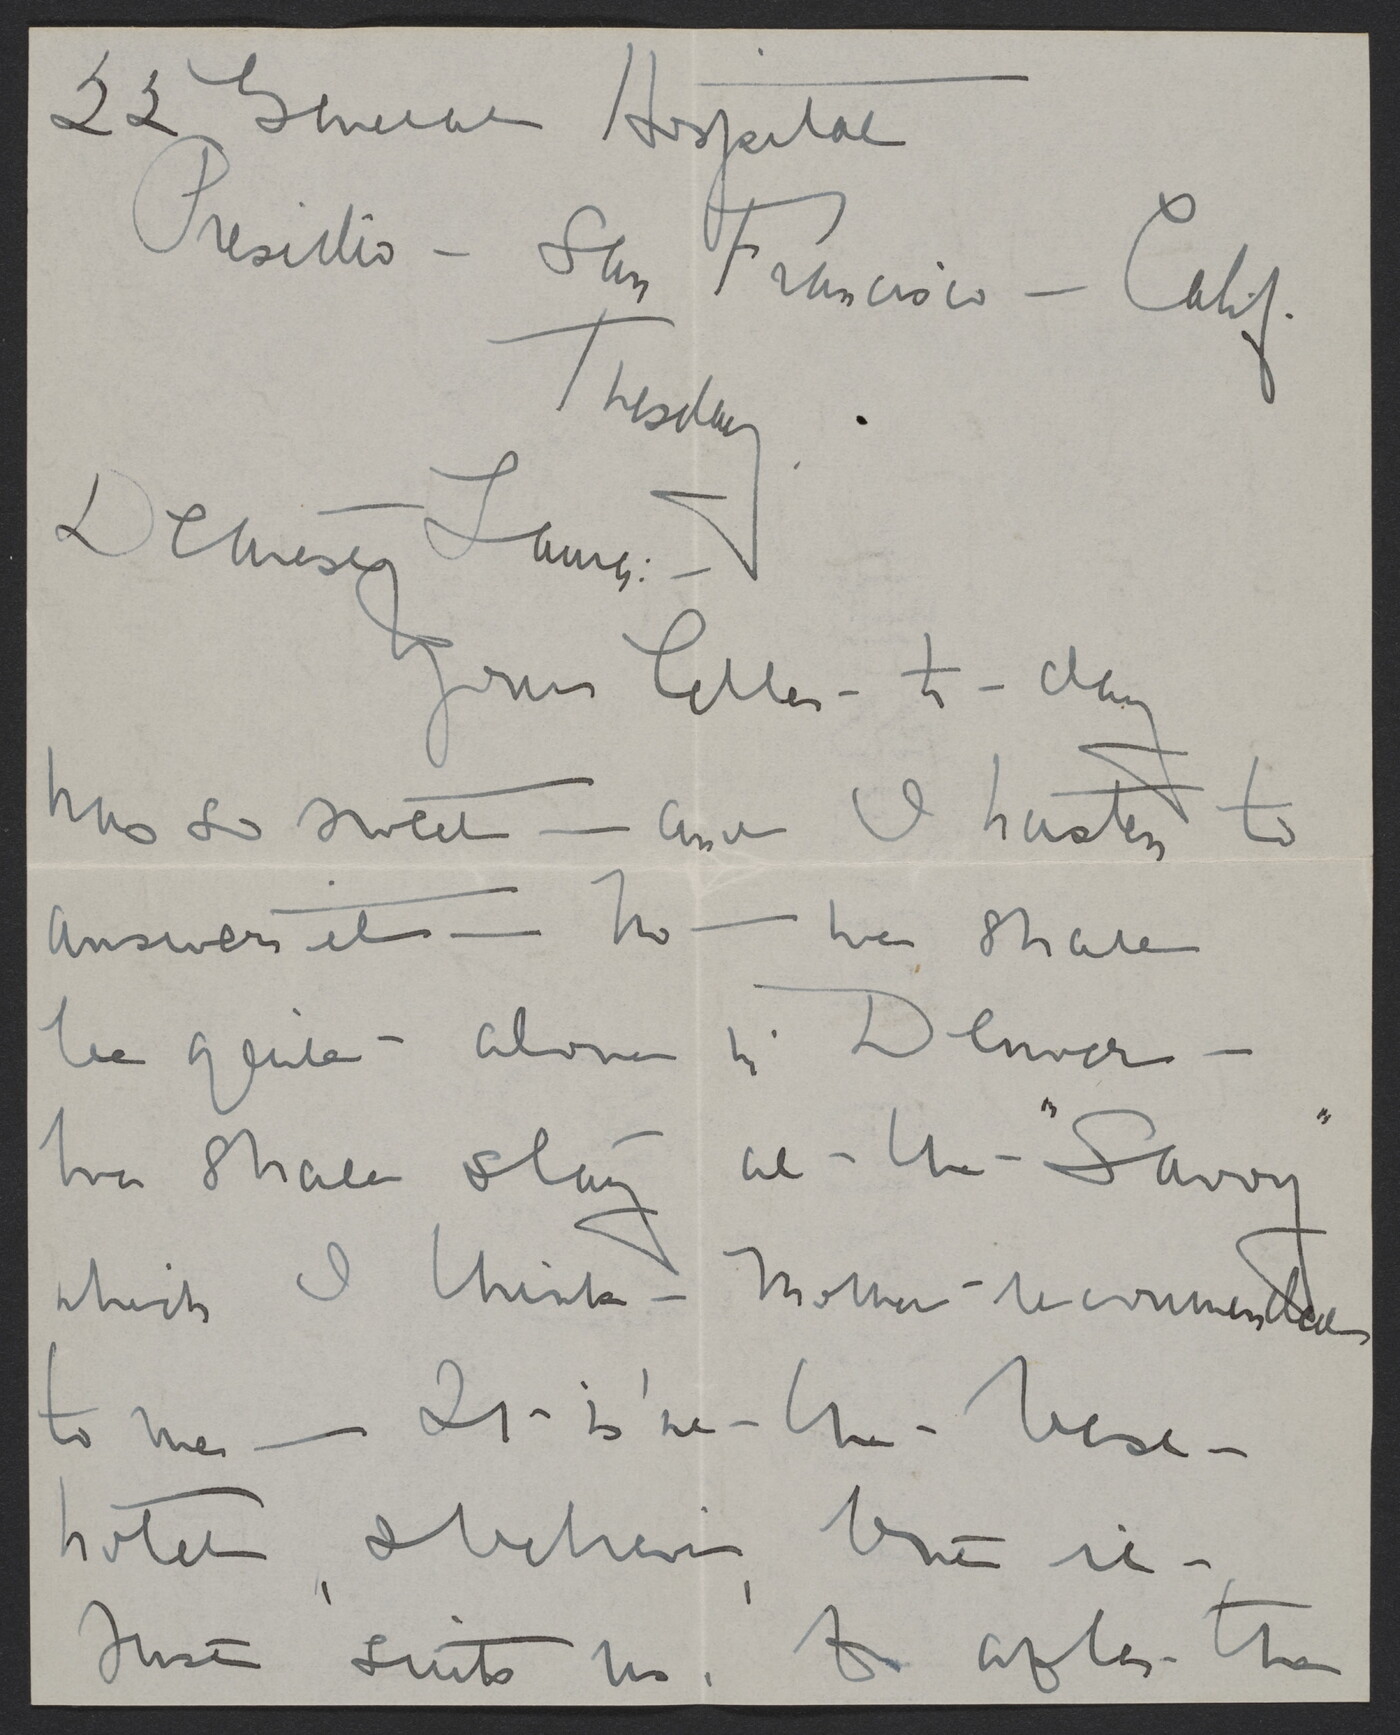 22 General Hospital
Presidio - San Francisco - Calif.
Tuesday.
Dearest Laura: -
Your letter - to-day
was so sweet - and I hasten to
answer it - No - we shall
be quite - alone in Denver -
We shall stay at - the - "Savoy"
which I think - Mother - recommended
to me - It - is'nt - the - best -
hotel, I believe, but it -
Just suits us. So after - the